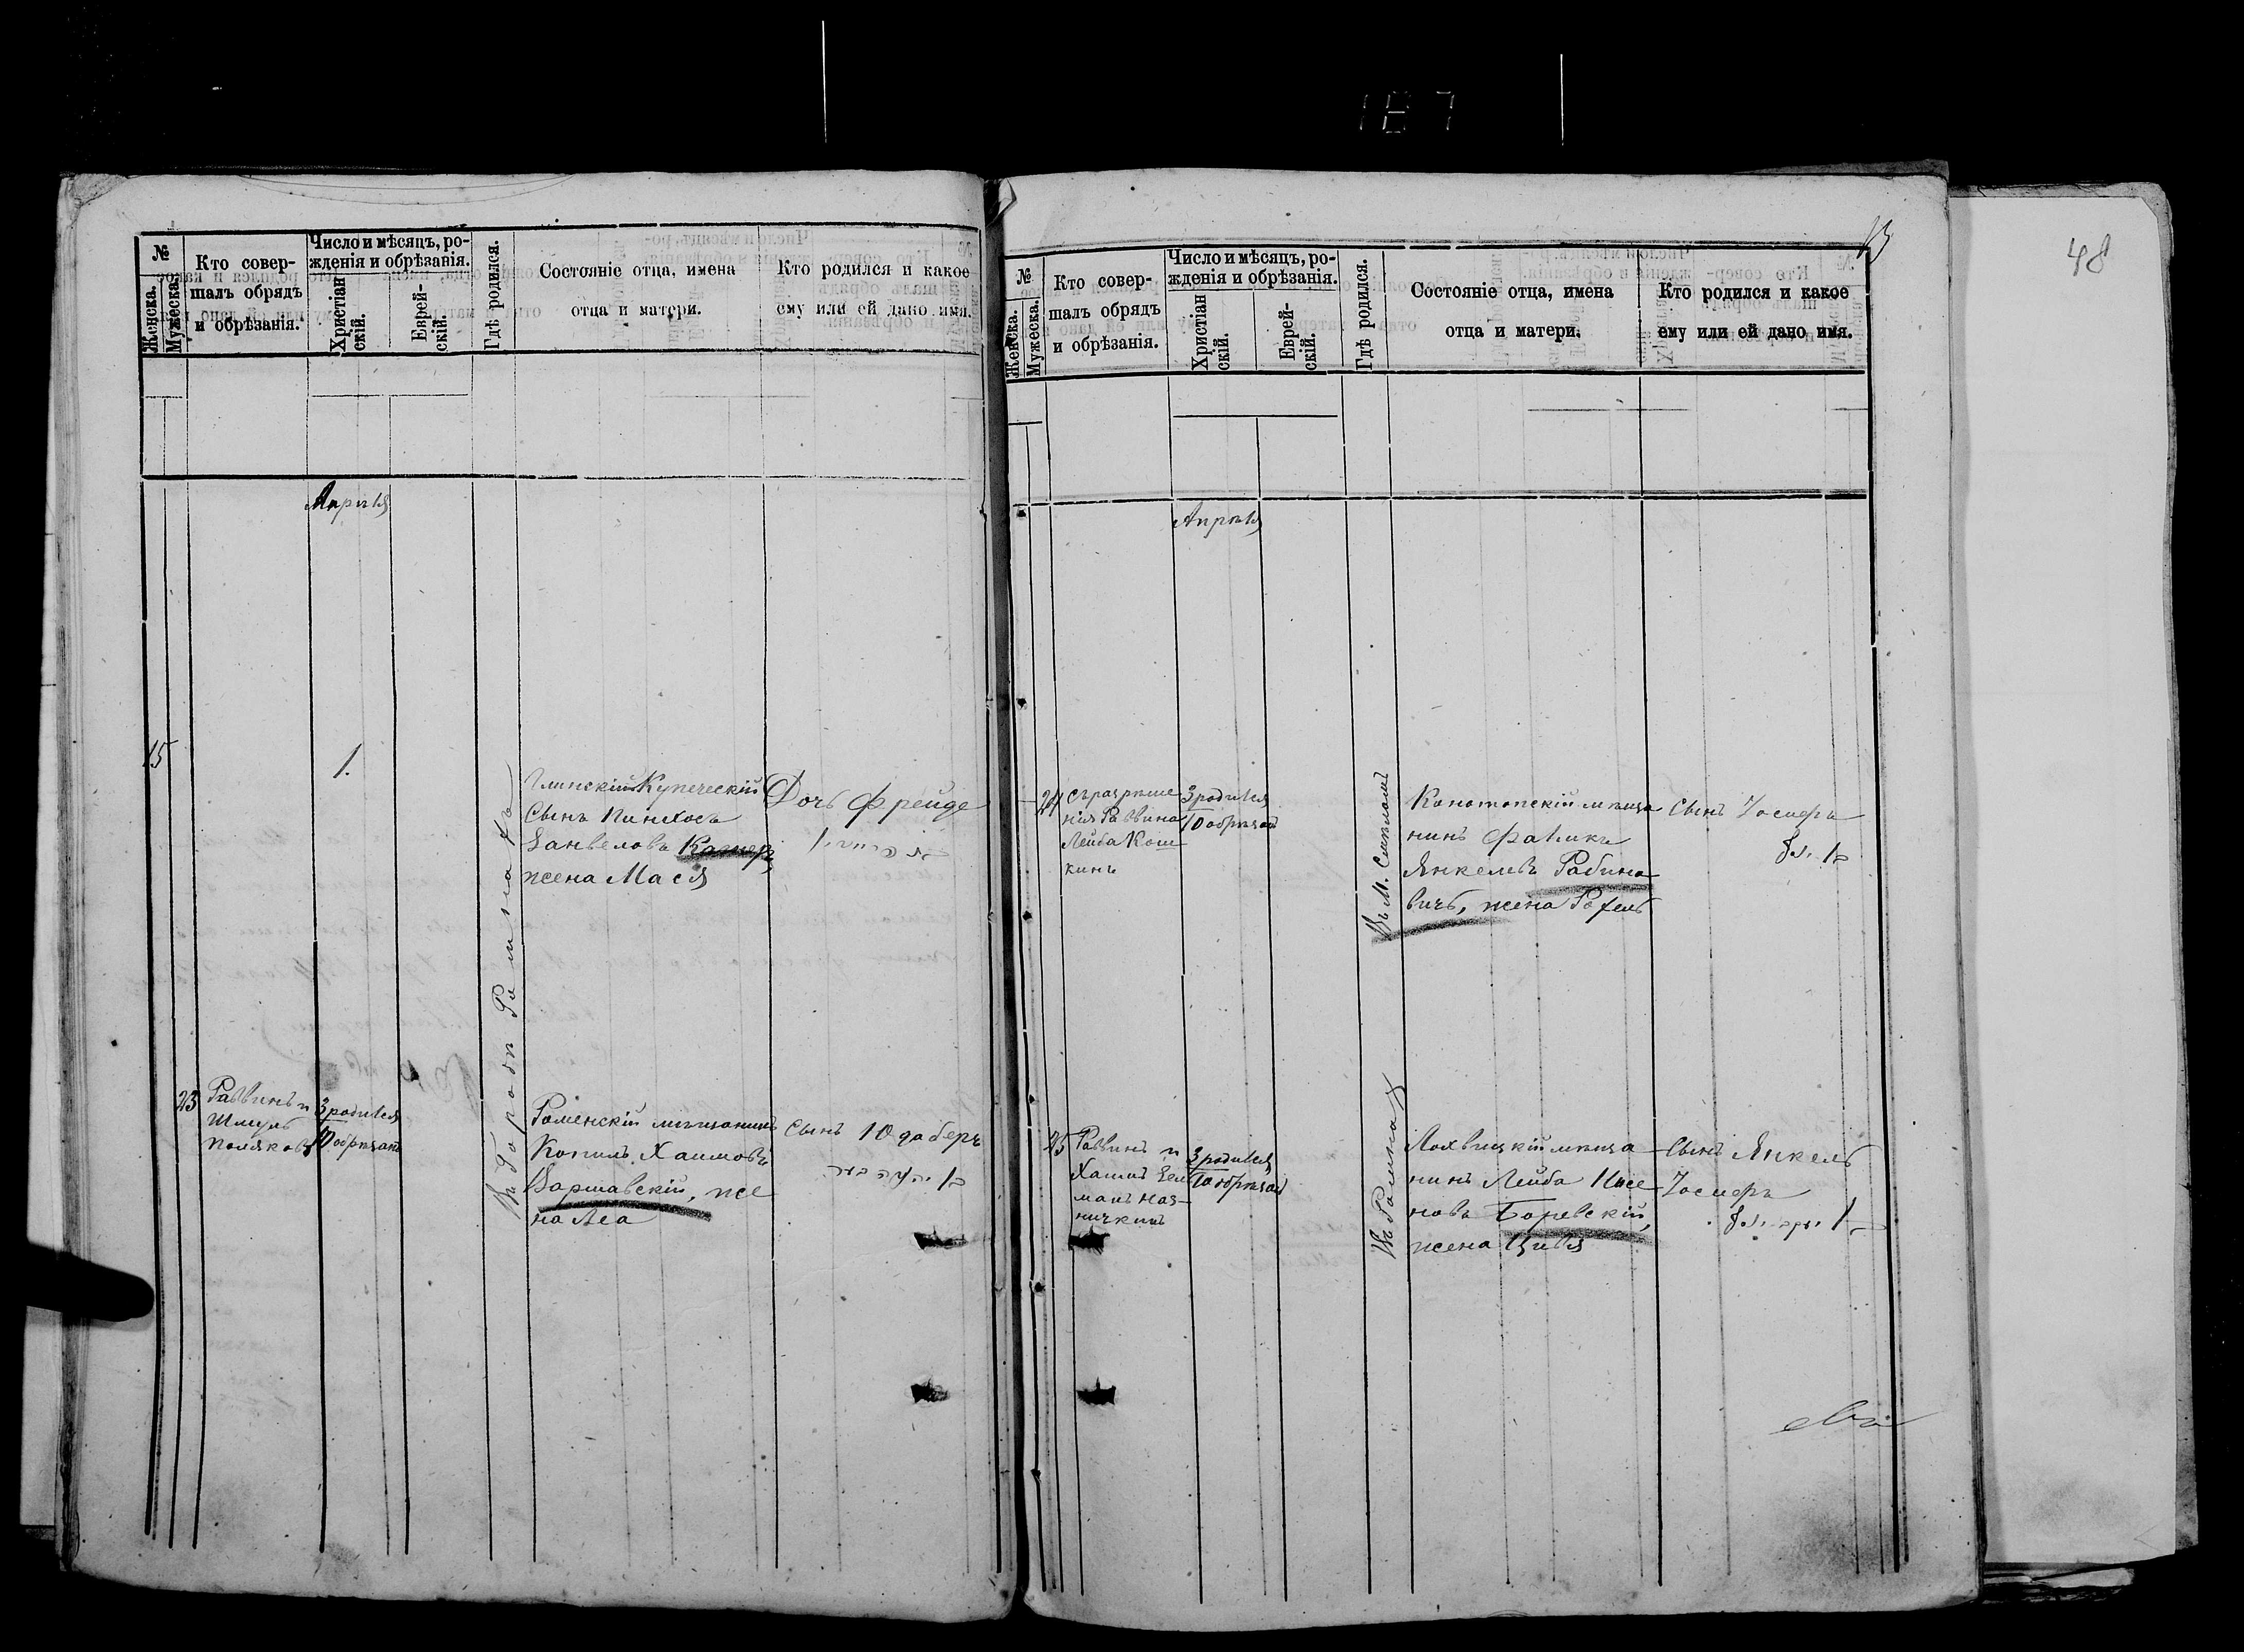 187
№
Женска.
Мужеска.
Кто совер-
шалъ обрядъ
и обрѣзанія.
Число и мѣсяцъ, ро-
жденія и обрѣзанія.
Христіан
скій.
Еврей-
скій.
Гдѣ родился.
Состояніе отца, имена
отца и матери.
Кто родился и какое
ему или ей дано имя.
Апрѣля
15
1.
Въ городѣ
Глинскій Купеческій
Сынъ Пинхосъ
Занвеловъ
жена Мася
Дочь Фрейде
23
Раввинъ и
Шмуль
Поляковъ
3 родился
10 обрѣзанъ
Роменскій мѣщанинъ
Копилъ Хаимовъ
Варшавскій, же
на Леа
Сынъ
13
№
Женска.
Мужеска.
Кто совер-
шалъ обрядъ
и обрѣзанія.
Число и мѣсяцъ, ро-
жденія и обрѣзанія.
Христіан
скій.
Еврей-
скій.
Гдѣ родился.
Состояніе отца, имена
отца и матери.
Кто родился и какое
ему или ей дано имя.
Апрѣля
24
съ разрѣше
нія Раввина
Лейба Кош
кинъ
3 родился
10 обрѣзанъ
Въ М. Смѣломъ
Конотопскій мѣща
нинъ Фаликъ
Янкелевъ Рабино
вичъ, жена Рохель
Сынъ Іосифъ
25
Раввинъ и
Хаимъ Зел
манъ
3 родился
10 обрѣзанъ
Въ Ромнахъ
Лохвицкій мѣща
нинъ Лейба
новъ Боревскій,
жена Цивья
Сынъ Янкель
Іосифъ
48